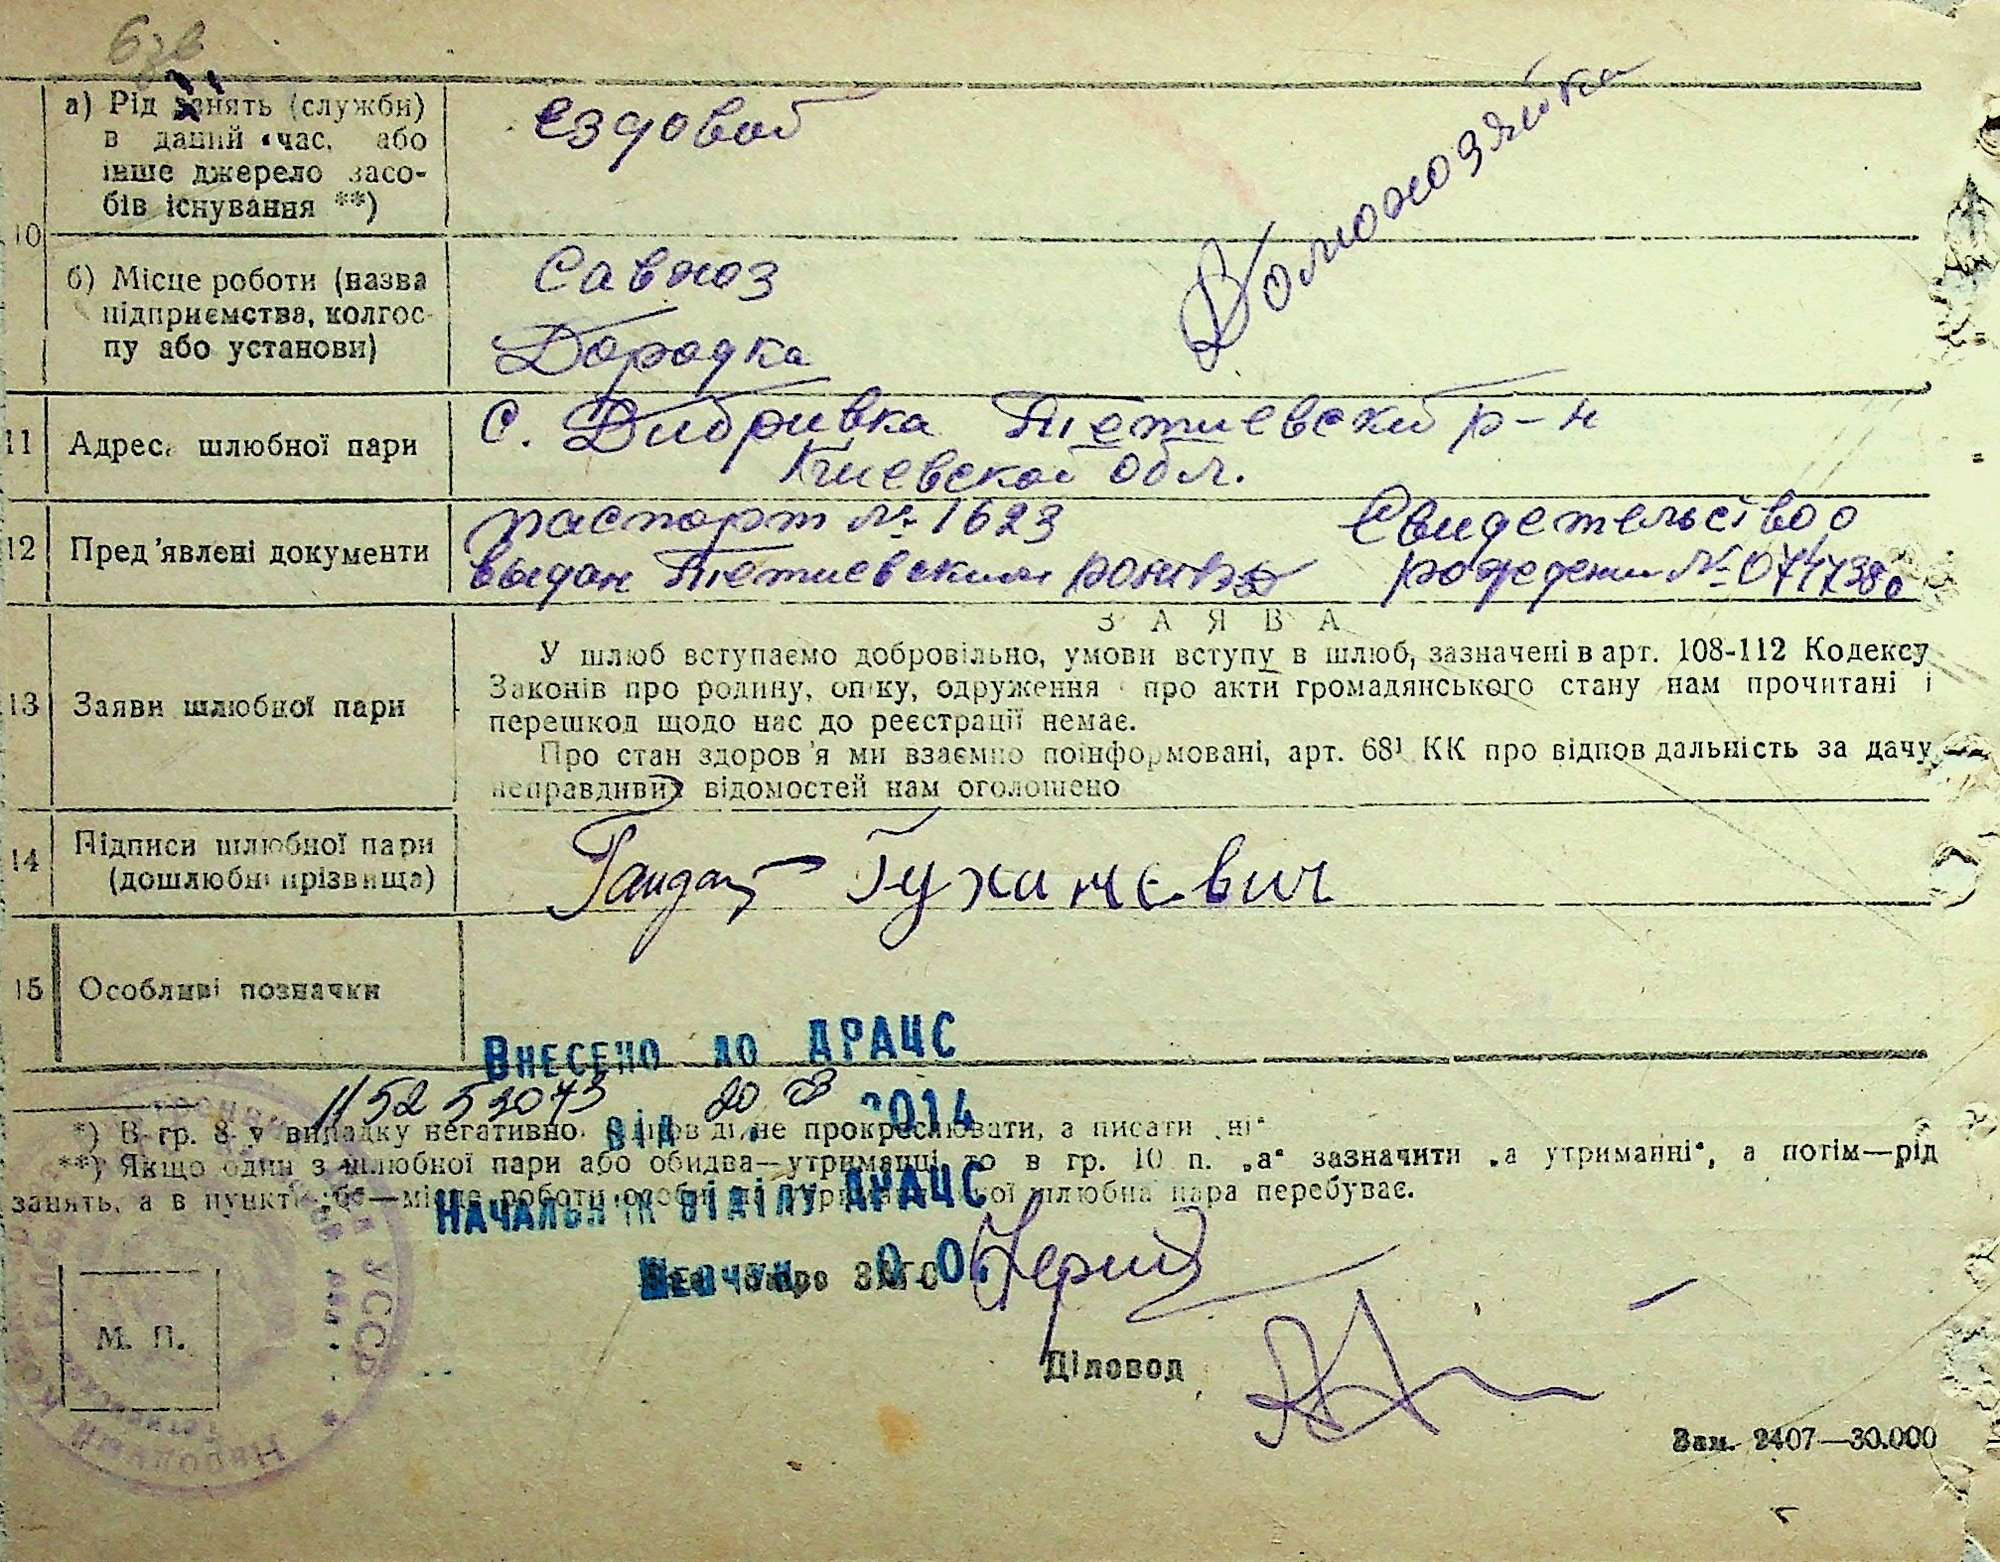 10
а) Рід занять (служби)
в даний час, або
інше джерело засо-
бів існування **)
ездовой
Домохозяйка
б) Місце роботи (назва
підприємства, колгос-
пу або установи)
Савхоз
Дородка
11 Адреса шлюбної пари
с. Дибривка Тетиевский р-н
Киевской обл.
12 Пред'явлені документи
паспорт № 1623
выдан Тетиевским
Свидетельство о
рождении №
13 Заяви шлюбної пари
ЗАЯВА
У шлюб вступаємо добровільно, умови вступу в шлюб, зазначені в арт. 108-112 Кодексу
Законів про родину, опіку, одруження про акти громадянського стану нам прочитані і
перешкод щодо нас до реєстрації немає.
Про стан здоров'я ми взаємно поінформовані, арт. 68¹ КК про відповідальність за дачу
неправдивих відомостей нам оголошено
14 Підписи шлюбної пари
(дошлюбні прізвища)
15 Особливі позначки
Внесено до ДРАЦС
від 20 03 2014
*) В гр. 8 у випадку негативно. відповіді не прокреслювати, а писати „ні“
**) Якщо один з шлюбної пари або обидва—утриманці, то в гр. 10 п. „а“ зазначити „а утриманні“, а потім—рід
занять, а в пункті „б“—місце роботи особи, на утриманні якої шлюбна пара перебуває.
Начальник відділу ДРАЦС
О.О.
ЗАГС
М. П.
УССР
Діловод
Зам. 2407—30.000